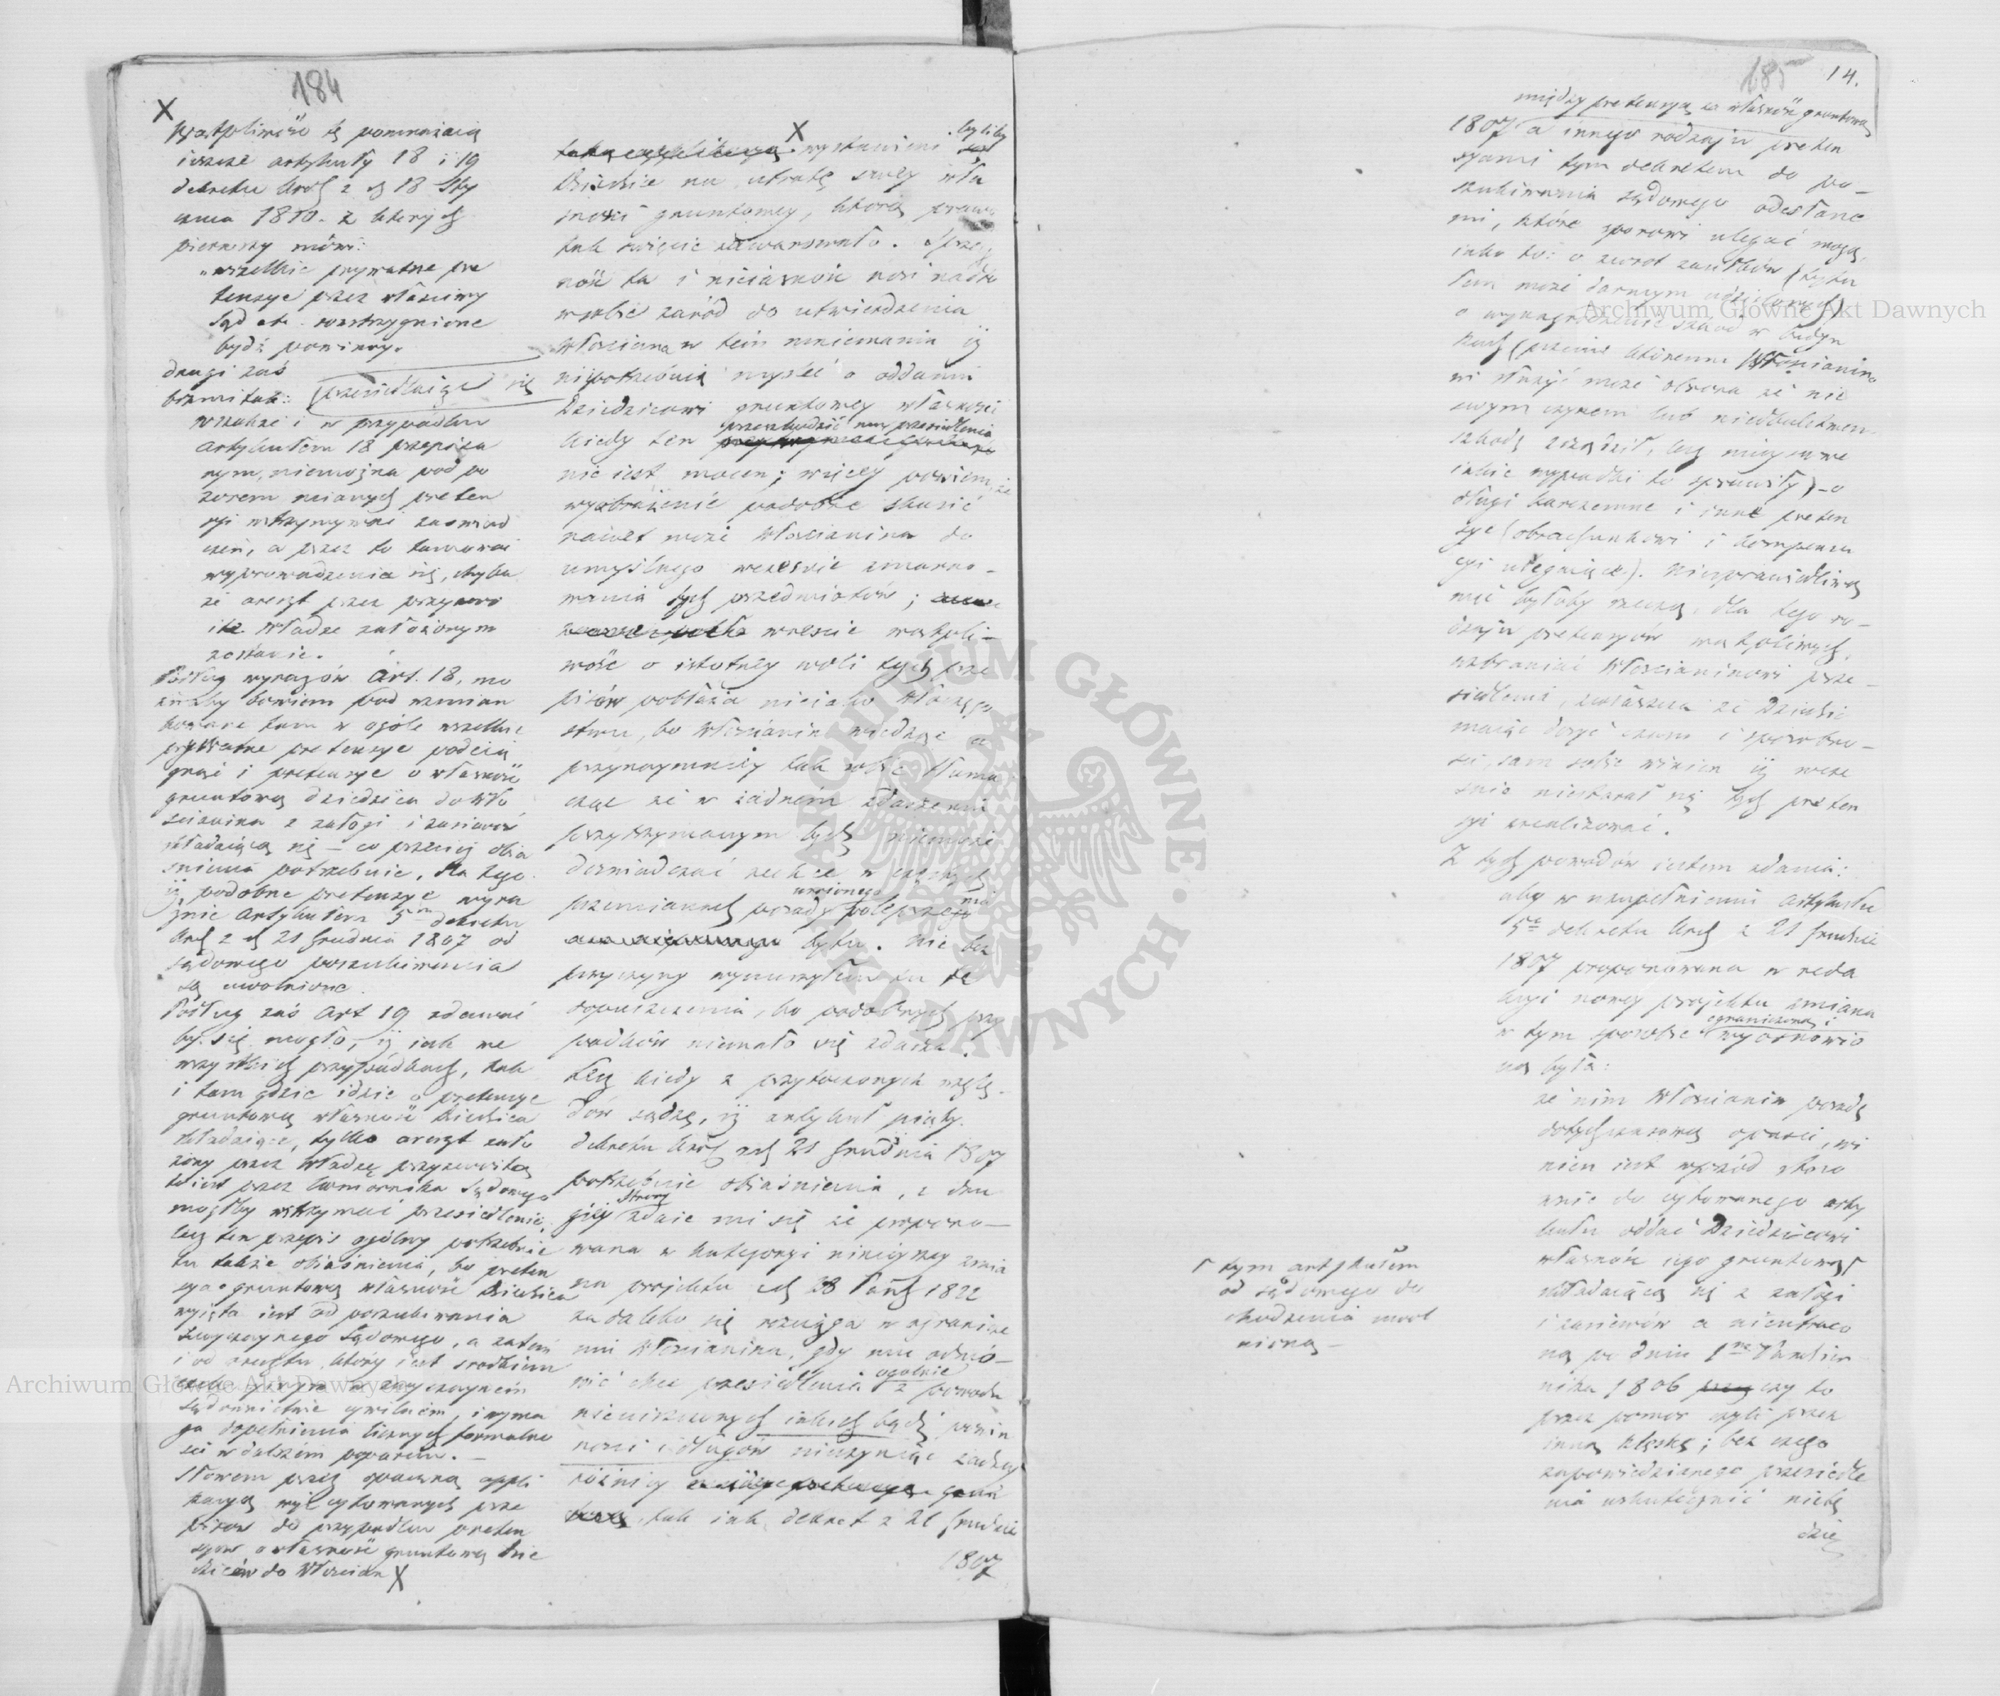 184
X
Wątpliwość tę pomnażaią
ieszcze artykuły 18 i 19
dekretu Król z d 18 Sty
cznia 1810. z których
pierwszy mówi:
"wszelkie prywatne pre
tensye przez właściwy
Sąd etc. rozstrzygnione
bydź powinny.
drugi zaś
brzmi tak: przesiedlaiące się
wszakże i w przypadku
artykułem 18 przepisa
nym, niemożna pod po
zorem mianych preten
syi wstrzymywać zaświad
czeń, a przez to tamować
wyprowadzenia się, chyba
że areszt przez przyzwo
itą Władzę założonym
zostanie.
Podług wyrazów Art. 18. mo
żnaby bowiem pod wzmian
kowane tam w ogóle wszelkie
prywatne pretensye podcią
gnąć i pretensye o własność
gruntową dziedzica do Wło
ścianina z załogi i zasiewów
składaiącą się – co przecież obia
śnienia potrzebuie, dla tego
iż podobne pretensye wyra
źnie Artykułem 5m dekretu
Król z d 21 Grudnia 1807 od
sądowego poszukiwania
są uwolnione.
Podług zaś Art 19 zdawać
by się mogło, iż iak we
wszystkich przypadkach, tak
i tam gdzie idzie o pretensye
gruntową własność Dziedzica
składaiące, tylko areszt zało
żony przez Władzę przyzwoitą
to iest przez komornika Sądowego
mógłby wstrzymać przesiedlenie,
lecz ten przepis ogólny potrzebuie
tu także obiaśnienia, bo preten
sya o gruntową własność Dziedzica
wyięta iest od poszukiwania
zwyczaynego Sądowego, a zatém
i od aresztu, który iest srodkiem
w zwyczayném
sądownictwie cywilném, i wyma
ga dopełnienia licznych formalno
ści w dalszém poparciu. –
Słowem przez opaczną appli
kacyą wyż cytowanych prze
pisów do przypadku preten
syów o własność gruntową dzie
dziców do Włościan X
X
wystawieni byliby
Dziedzice na utratę swoiey wła
sności gruntowey, którą prawo
tak święcie zawarowało. Sprze
ność ta i nieiasność nosi nadto
w sobie zaród do utwierdzenia
Włościana w tém mniemaniu iż
niepotrzebuie myśleć o oddaniu
Dziedzicowi gruntowey własności
kiedy ten przeszkodzić mu przesiedlenia
nie iest mocen; więcey powiem, że
wyobrażenie podobne skusić
nawet może Włościanina do
umyślnego wcześnie zmarno-
wania tych przedmiotów;
wreście wątpli-
wość o istotney woli tych prze
pisów pobłaża nieiako Włóczęgo
stwu, bo Włościanin wiedząc a
przynaymniey tak sobie tłuma
cząc że w żadném zdarzeniu
przytrzymanym bydź niemoże
doświadczać zechce w częstych
przemianach posady uroionego polepsze nia
bytu. Nie bez
przyczyny wynurzyłem tu te
dopuszczenia, bo podobnych przy
padków niemało się zdarza.
Lecz kiedy z przytoczonych wzglę-
dów sądzę, iż artykuł piąty
dekretu Król z d 21 Grudnia 1807
potrzebuie obiaśnienia, z dru
giey strony zdaie mi się że propono-
wana w kategoryi ninieyszey zmia
na projektu z d 28 1822
za daleko się rozciąga w ogranicze
niu Włościanina, gdy mu odmó-
wić chce przesiedlenia ogólnie z powodu
nieuiszczonych iakich bądź powin
ności i długów nieczyniąc żadney
różnicy
tak iak dekret z 21 Grudnia
1807
185
14.
między pretensyą za własność gruntową
1807 a innego rodzaju preten
syami tym dekretem do po-
szukiwania sądowego odesłane
mi, które sporowi ulegać mogą,
iako to: o zwrot zasiłków (tytu
łem może darnym udzielonych)
o wynagrodzenie szkód w budyn
kach (przeciw któremu Włościanino
wi służyć może obrona że nie
swym czynem lub niedbalstwem
szkodę zrządził, lecz
iakie wypadki to sprawiły) – o
długi karczemne i inne preten
sye (obrachunkowi i kompensa
cyi uległe). Niesprawiedliwą
więc byłaby rzeczą, dla tego ro-
dzaju pretensyów wątpliwych,
wzbraniać Włościaninowi prze-
siedlenia, zwłaszcza że Dziedzic
maiąc dosyć czasu i sposobno-
ści, sam sobie winien iż wcze
śnie niestarał się tych preten
syi zrealizować.
Z tych powodów iestem zdania:
aby w uzupełnieniu Artykułu
5go dekretu Król z 21 Grudnia
1807 proponowana w reda
kcyi nowey projektu zmiana
w tym sposobie ograniczoną i wysłowio
ną była:
że nim Włościanin posadę
dotychczasową opuści, wi
nien iest wprzód stoso
wnie do cytowanego arty
kułu oddać Dziedzicowi
własność iego gruntową Γ
składaiącą się z załogi
i zasiewów a nieutraco
ną po dniu 1ym Paździer
nika 1806 czy to
przez pomor czyli przez
inną klęskę; bez czego
zapowiedzianego przesiedle
nia uskutecznić niebę
dzie
Γ tym artykułem
od sądowego do
chodzenia uwol
nioną –
Archiwum Główne Akt Dawnych
Archiwum Główne Akt Dawnych
ARCHIWUM GŁÓWNE AKT DAWNYCH